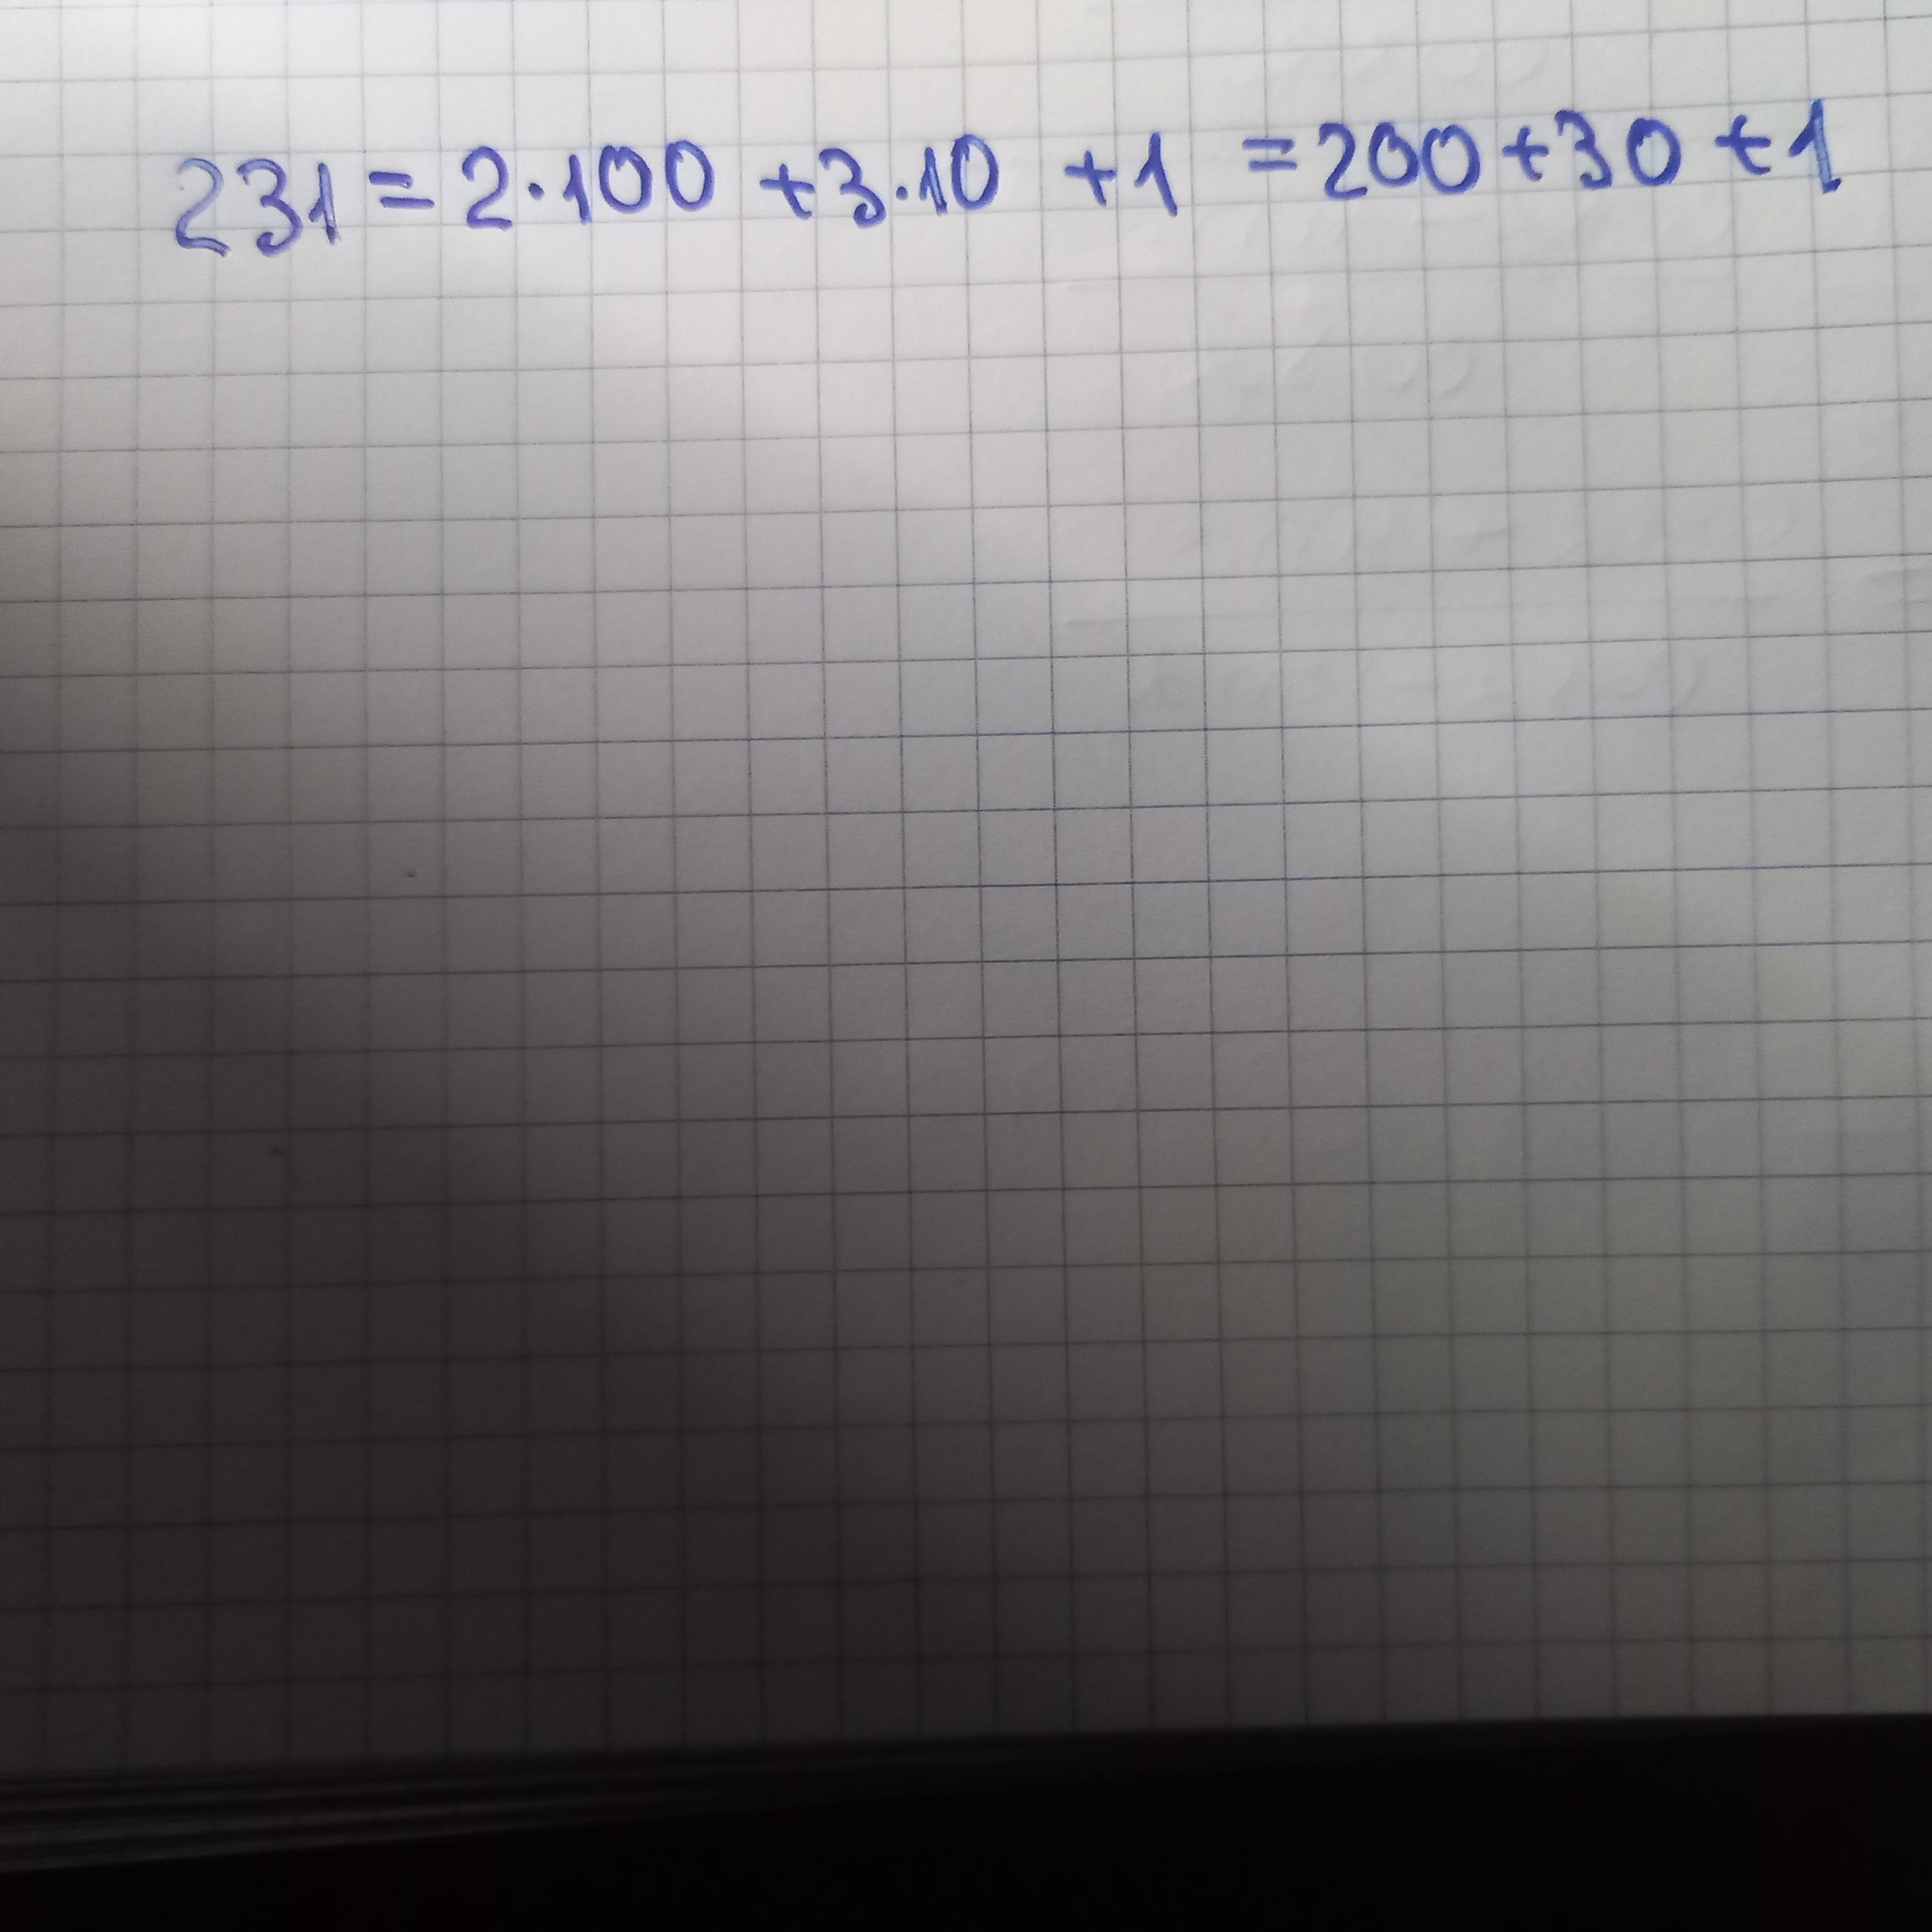 231 = 2·100 + 3·10 + 1 = 200 + 30 + 1